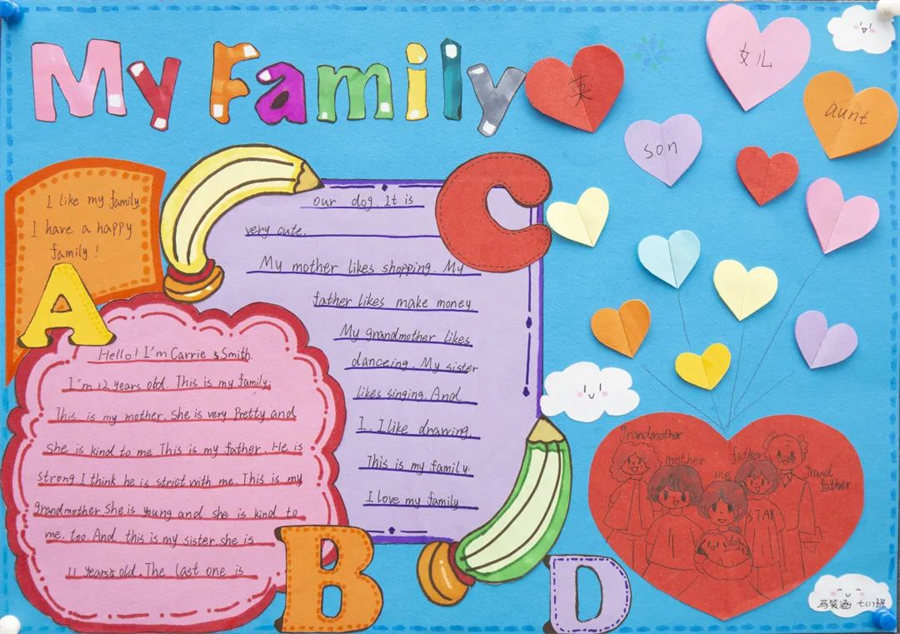 My Family
英
女儿
aunt
son
I like my family
I have a happy
family!
A
Hello! I'm Carrie &Smith
I'm 12 years obd. This is my family.
This is my mother. She is very Pretty and
she is kind to me. This is my father. He is
strong I think he is strict with me. This is my
grandmother She is young and she is kind to
me, too. And this is my sister. she is
11 years's old. The last one is
B
C
our dog. It is
very cute.
My mother likes shopping. My
father likes make money
My grandmother likes
danceing. My sister
likes singing. And
I. I like drawing.
This is my family
I love my family
D
grandmother
mother
father
me
grand
father
STAR